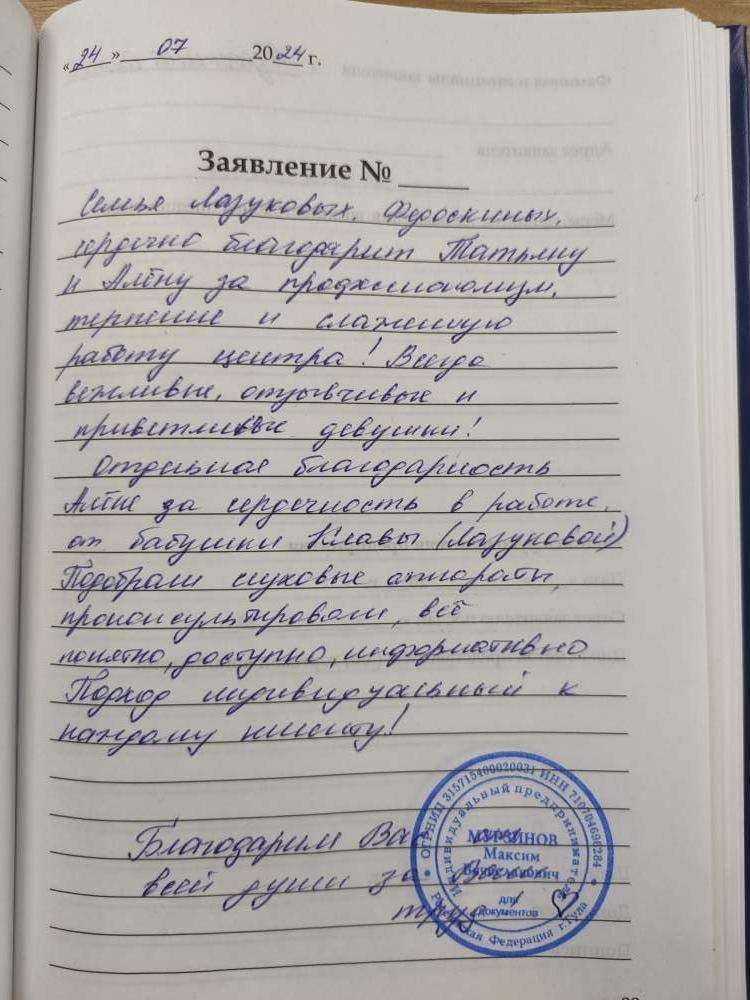 «24» 07 2024 г.
Заявление № ____
Семья Лазуковых, Феоскиных,
сердечно благодарит Татьяну
и Алёну за профессионализм,
терпение и слаженную
работу центра! Всегда
вежливые, отзывчивые и
приветливые девушки!
Отдельная благодарность
Алёне за сердечность в работе,
от бабушки Клавы (Лазуковой)
Подобрали слуховые аппараты,
проконсультировали, всё
понятно, доступно, информативно.
Подход индивидуальный к
каждому клиенту!
Благодарим Вас от
всей души за Ваш
труд!
ОГРНИП 315715400020031 ИНН 710704696284
Индивидуальный предприниматель
МУРЗИНОВ
Максим
для
документов
Российская Федерация г.Тула